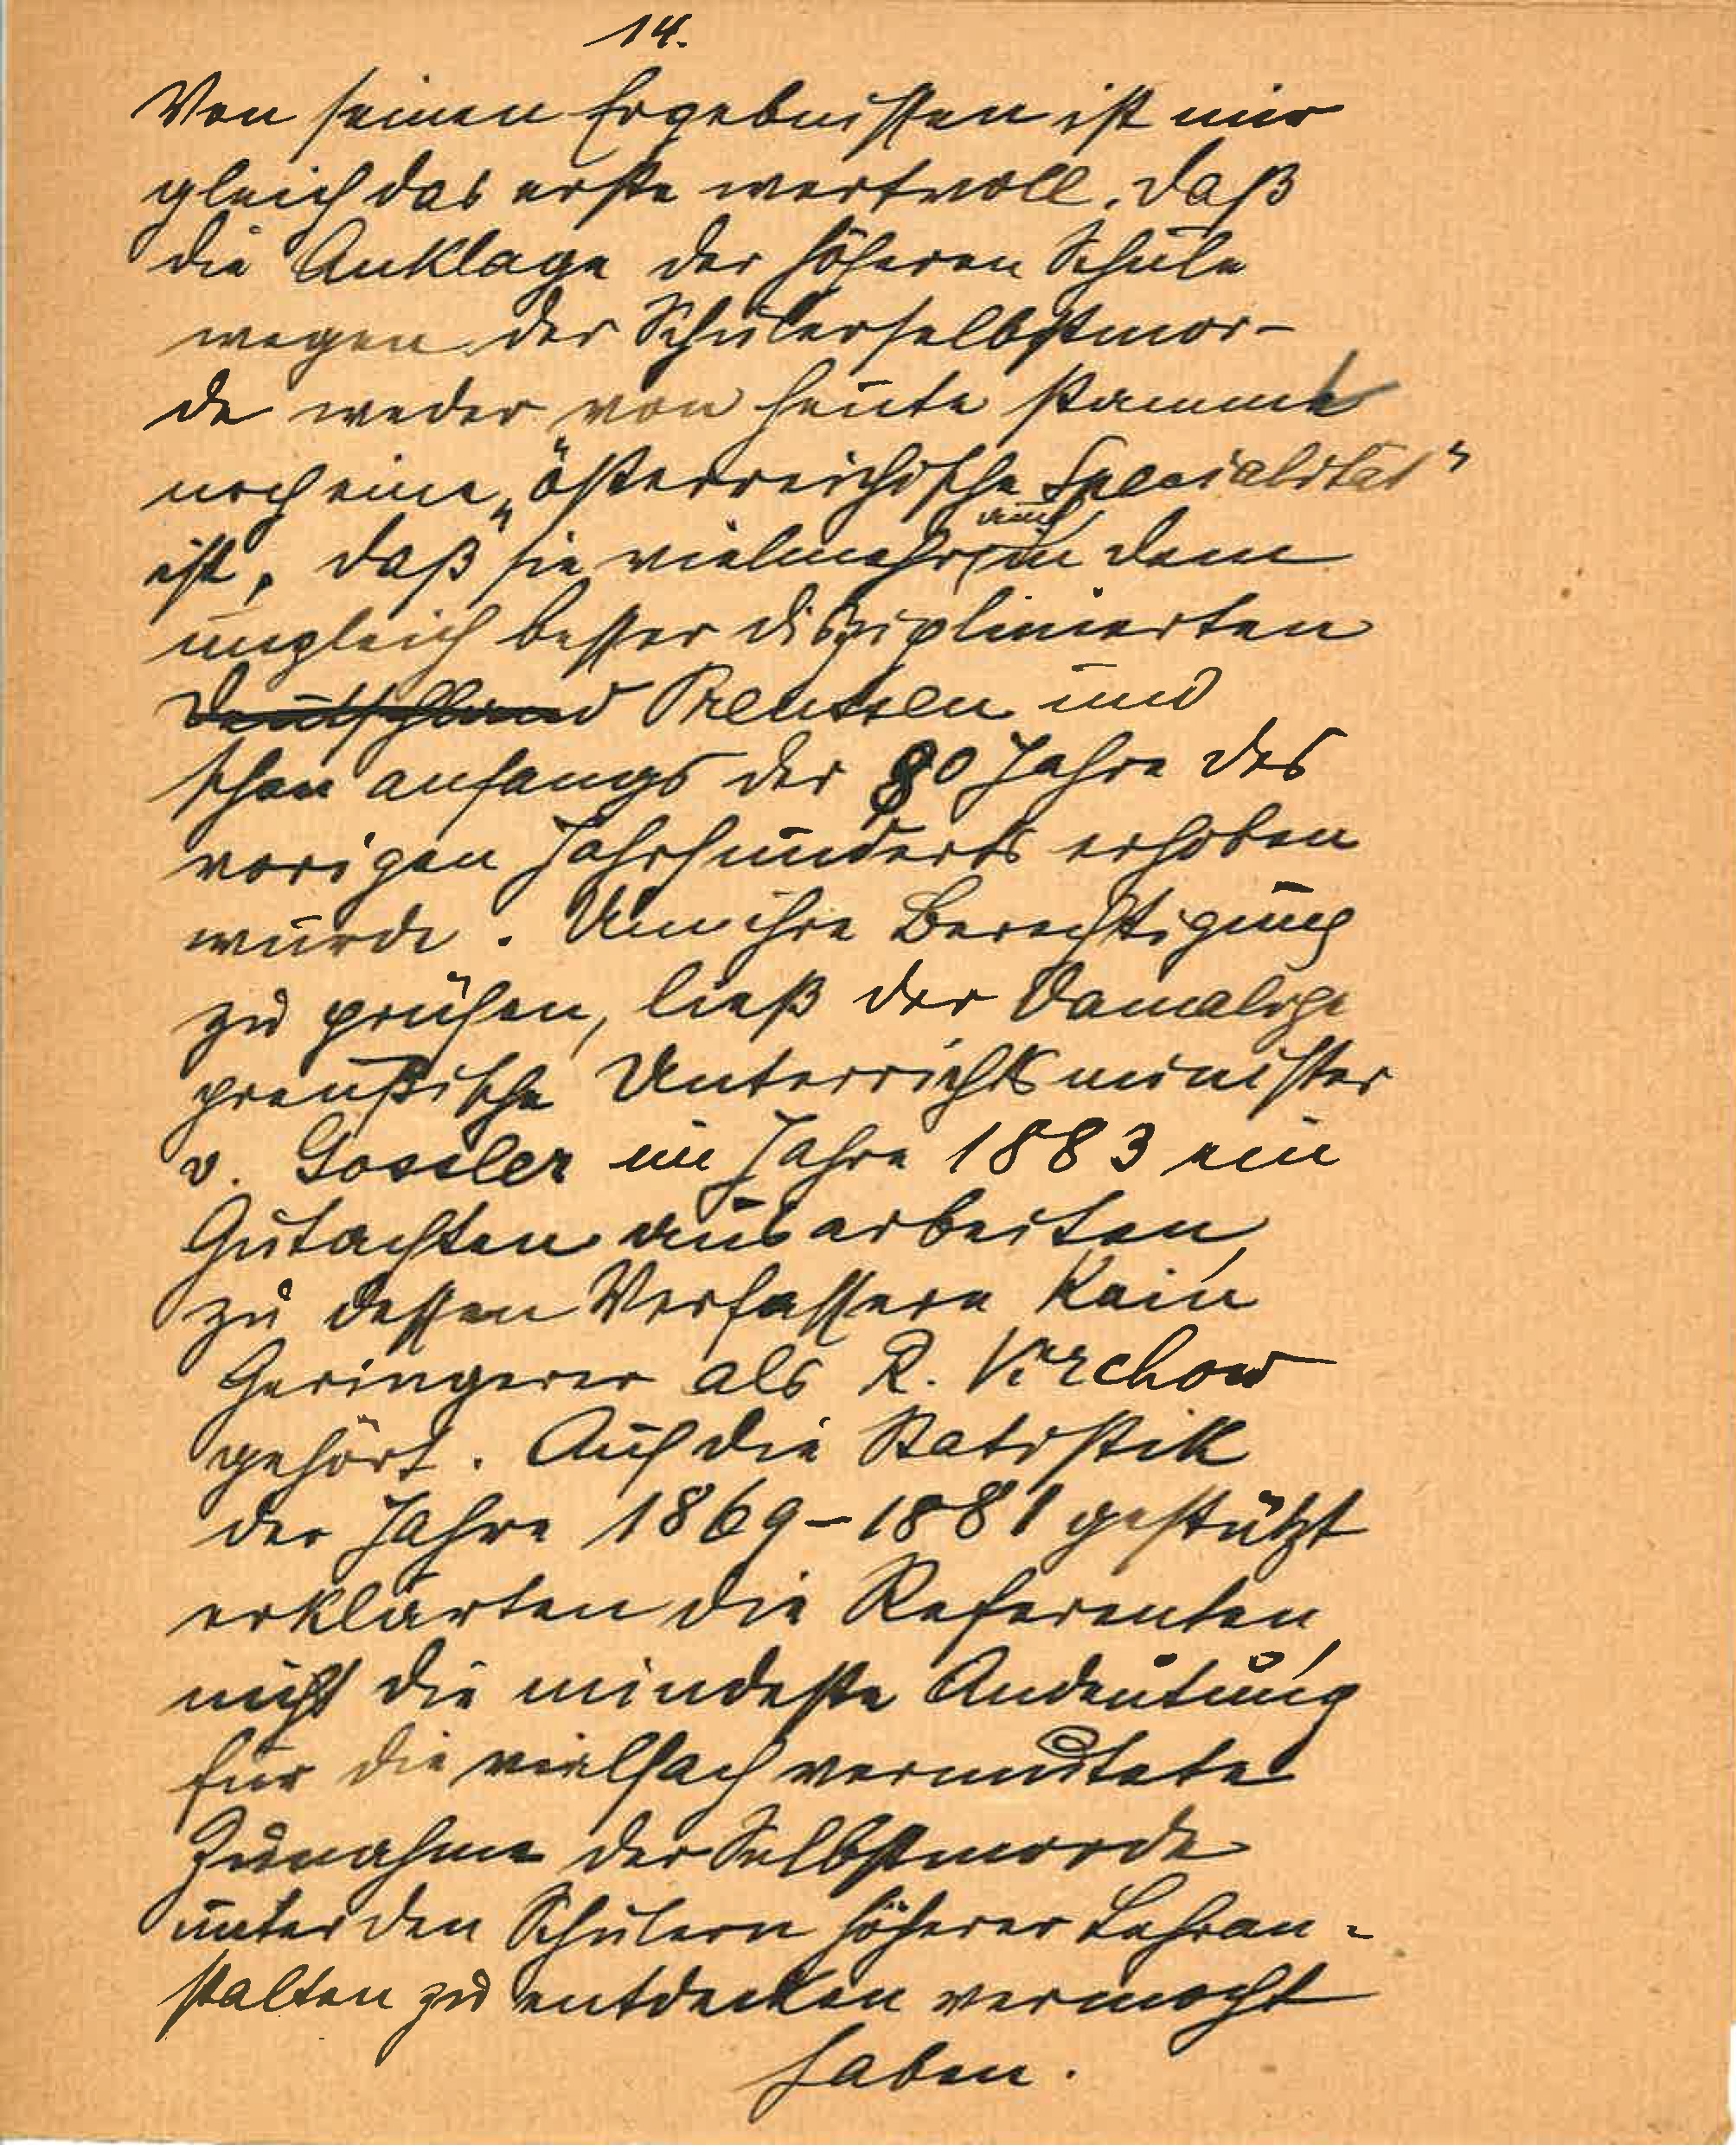 14.
Von seinen Ergebnissen ist mir
gleich das erste wertvoll, daß
die Anklage der höheren Schule
wegen der Schülerselbstmor-
de weder von heute stammt
noch eine „österreichische Specialität"
ist, daß sie vielmehr auch in dem
ungleich besser disziplinierten
Deutschland Preussen und
schon anfangs der 80 Jahre des
vorigen Jahrhunderts erhoben
wurde. Um ihre Berechtigung
zu prüfen, ließ der damalige
preußische Unterrichtsminister
v. Gossler im Jahre 1883 ein
Gutachten ausarbeiten,
zu dessen Verfassern kein
Geringerer als R. Virchow
gehört. Auf die Statistik
der Jahre 1869-1881 gestützt
erklärten die Referenten,
nicht die mindeste Andeutung
für die vielfach vermutete
Zunahme der Selbstmorde
unter den Schülern höherer Lehran-
stalten zu entdecken vermocht
haben.